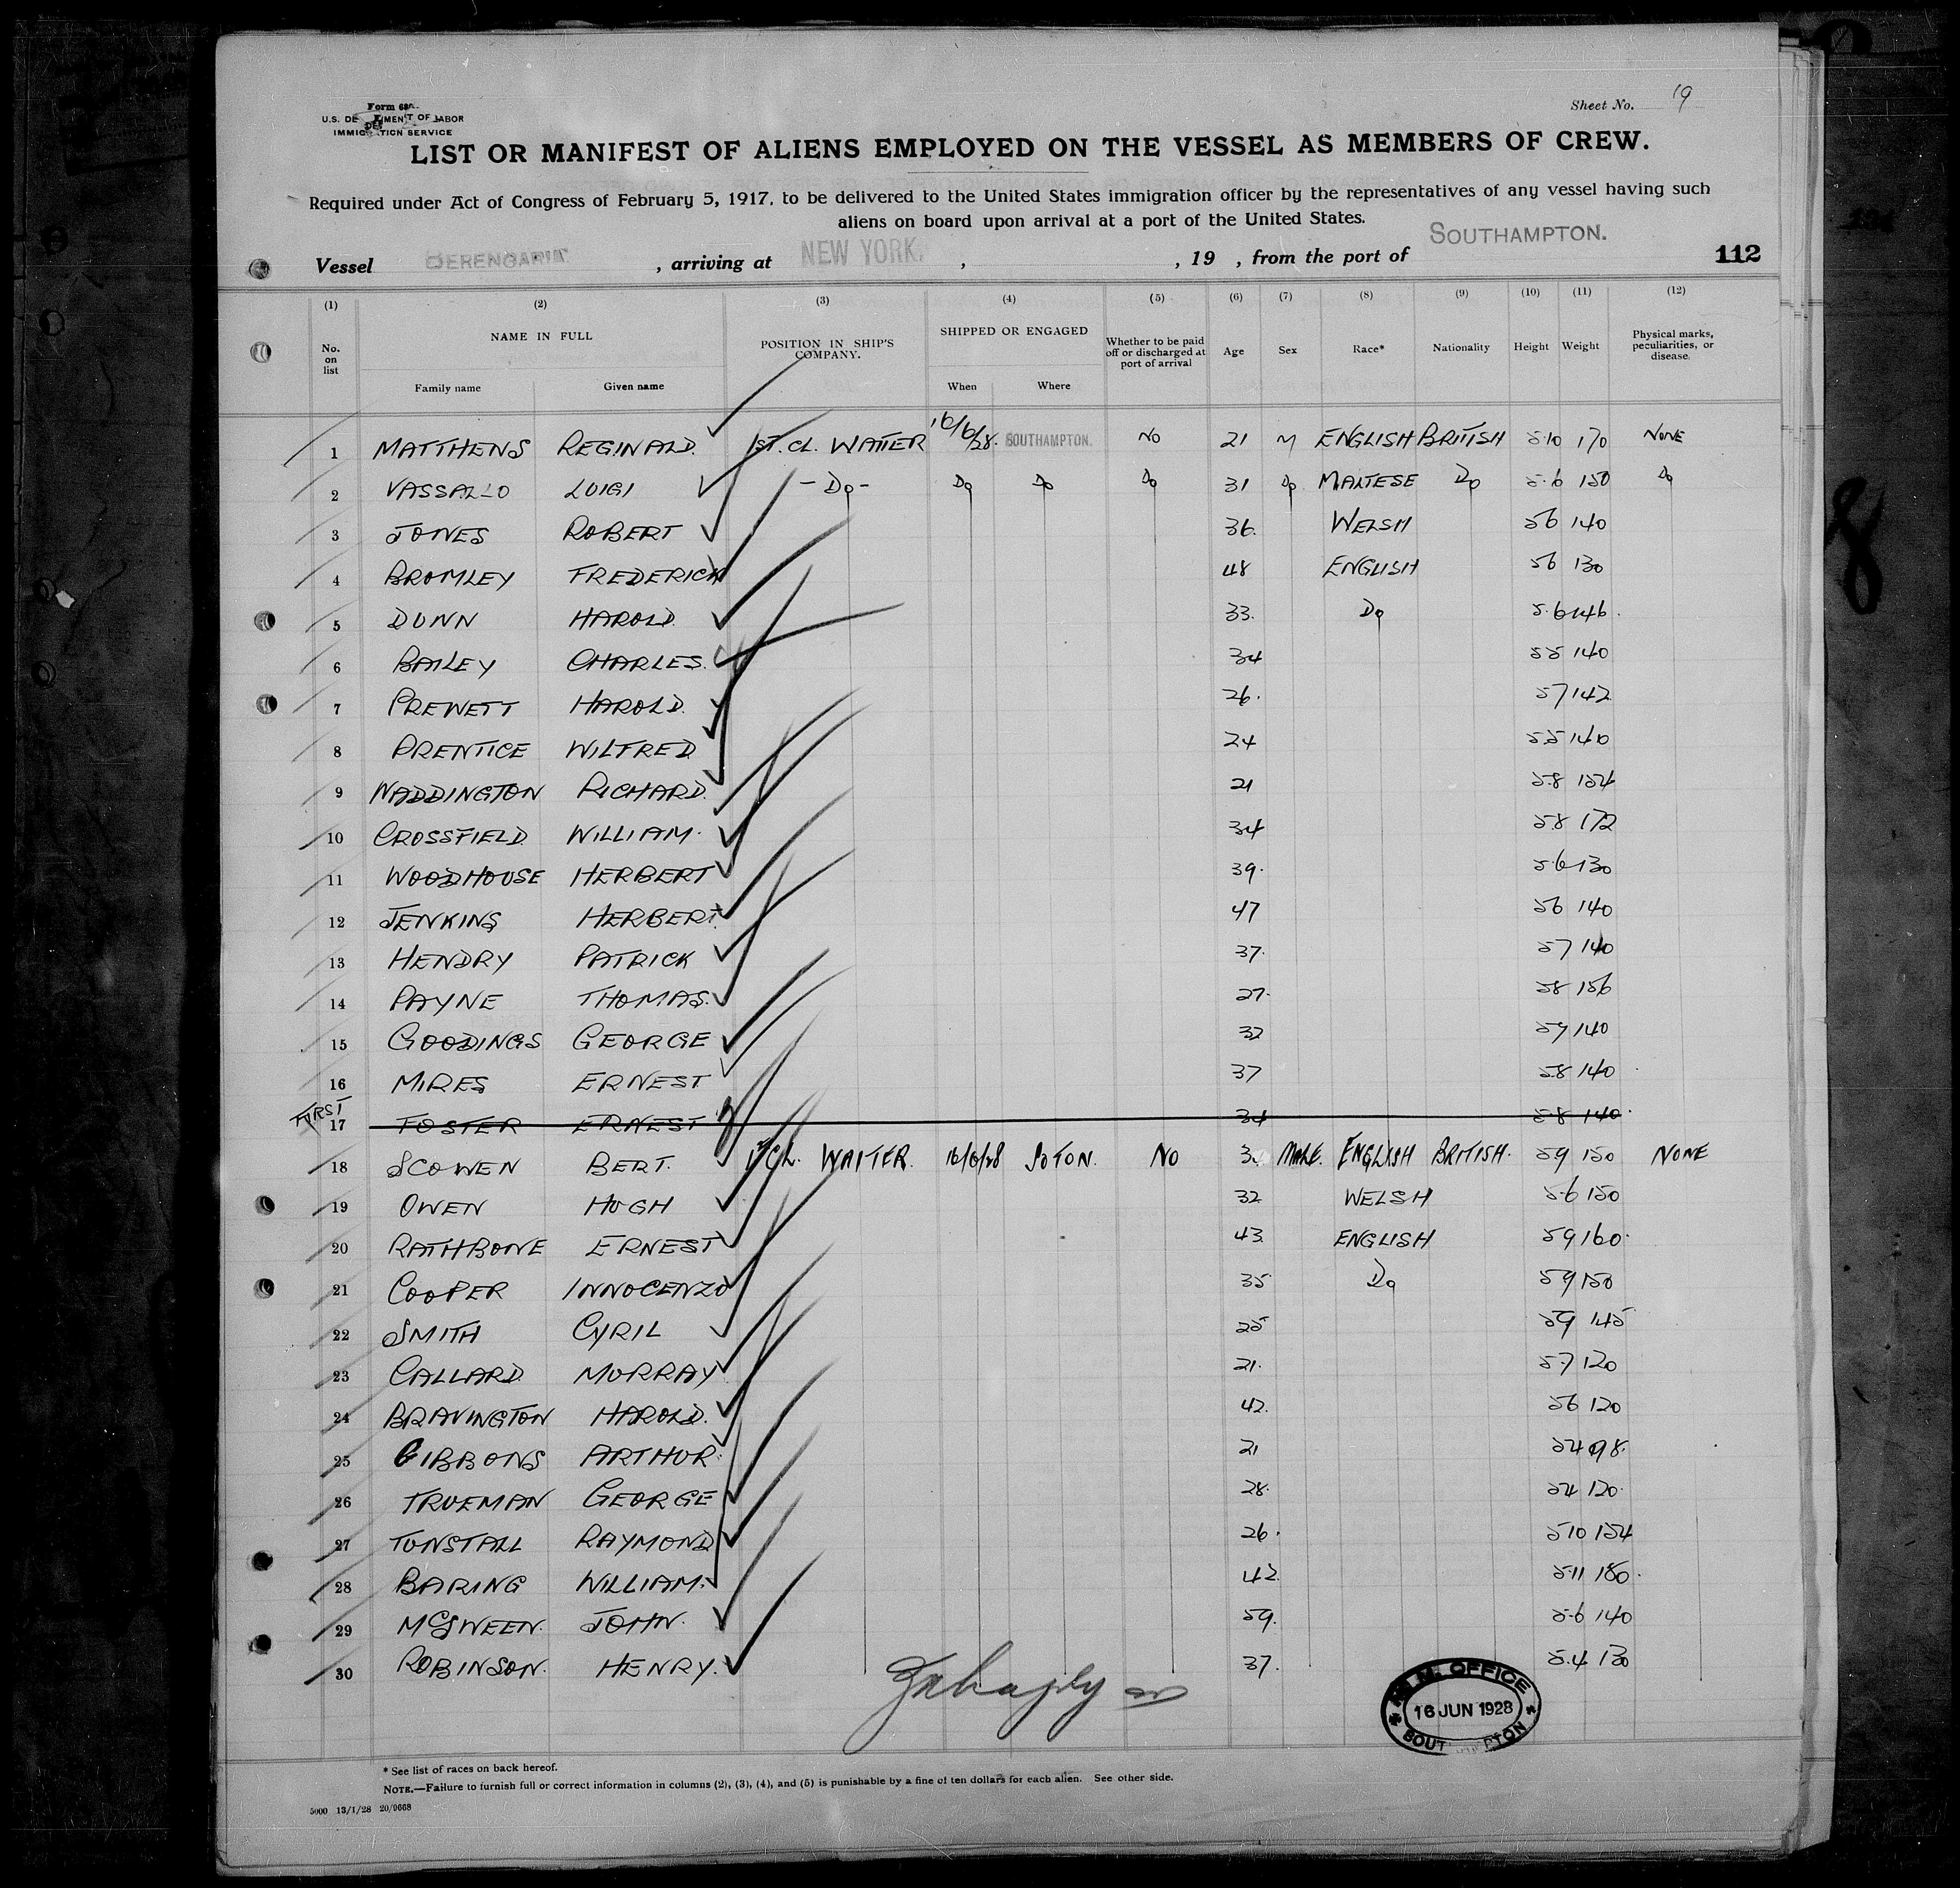 Sheet No. 19
Form 680
U.S. DE TMENT OF LABOR
IMMIG ATION SERVICE
LIST OR MANIFEST OF ALIENS EMPLOYED ON THE VESSEL AS MEMBERS OF CREW.
Required under Act of Congress of February 5, 1917, to be delivered to the United States immigration officer by the representatives of any vessel having such
aliens on board upon arrival at a port of the United States.
Vessel BERENGARIA , arriving at NEW YORK. , , 19 , from the port of SOUTHAMPTON. 112
(1) (2) (3) (4) (5) (6) (7) (8) (9) (10) (11) (12)
No. on list NAME IN FULL POSITION IN SHIP'S COMPANY. SHIPPED OR ENGAGED Whether to be paid off or discharged at port of arrival Age Sex Race* Nationality Height Weight Physical marks, peculiarities, or disease.
Family name Given name When Where
1 MATTHEWS REGINALD. 1ST. CL. WAITER 16/6/28. SOUTHAMPTON. NO 21 M ENGLISH BRITISH 5.10 170 NONE
2 VASSALLO LUIGI - Do - Do Do Do 31 Do MALTESE Do 5.6 150 Do
3 JONES ROBERT 36. WELSH 56 140
4 BROMLEY FREDERICK 48 ENGLISH 56 130
5 DUNN HAROLD. 33. Do 5.6 146.
6 BAILEY CHARLES. 34 55 140
7 PREWETT HAROLD. 26. 57 142
8 PRENTICE WILFRED 24 55 140
9 WADDINGTON RICHARD. 21 58 154
10 CROSSFIELD. WILLIAM. 34 58 172
11 WOODHOUSE HERBERT 39. 5.6 130
12 JENKINS HERBERT. 47 56 140
13 HENDRY PATRICK 37. 57 140
14 PAYNE THOMAS. 27. 58 156
15 GOODINGS GEORGE 32 59 140
16 MIRES ERNEST 37 58 140
FIRST
17 FOSTER ERNEST 34 5.8 140.
18 SCOWEN BERT. 1ST CL. WAITER. 16/6/28 SOTON. NO 3 MALE. ENGLISH BRITISH. 59 150 NONE
19 OWEN HUGH 32 WELSH 5.6 150
20 RATHBONE ERNEST 43. ENGLISH 59 160.
21 COOPER INNOCENZO 35 Do 59 150
22 SMITH CYRIL 25 59 145
23 CALLARD. MURRAY 21. 5.7 120
24 BRAVINGTON HAROLD. 42. 56 120
25 GIBBONS ARTHUR. 21 54 98.
26 TRUEMAN GEORGE 28. 54 120.
27 TUNSTALL RAYMOND 26. 510 154
28 BARING WILLIAM. 42. 5.11 180.
29 MCSWEEN. JOHN. 59. 5.6 140
30 ROBINSON. HENRY. 37. 5.4 130
M. M. OFFICE
16 JUN 1928
* See list of races on back hereof.
NOTE.—Failure to furnish full or correct information in columns (2), (3), (4), and (5) is punishable by a fine of ten dollars for each alien. See other side.
5000 13/1/28 20/9668